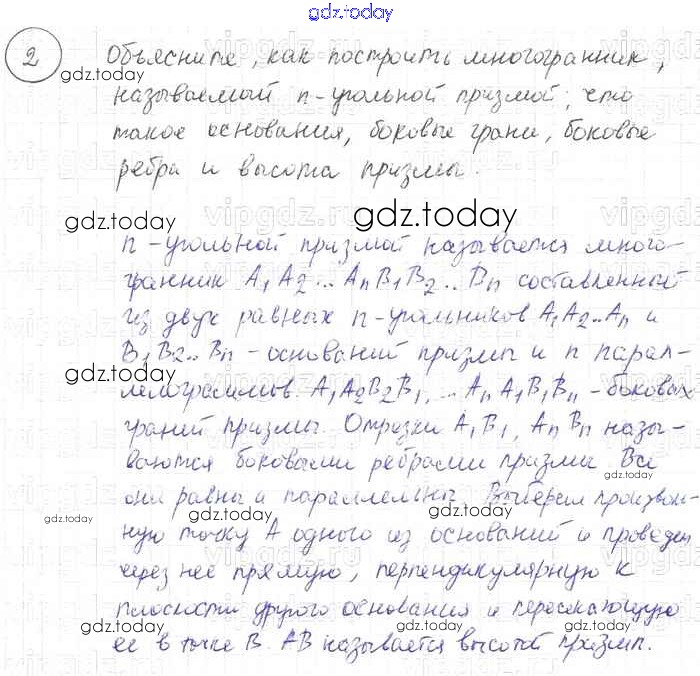 gdz.today
2 Объясните, как построить многогранник,
называемый n-угольной призмой; что
такое основания, боковые грани, боковые
ребра и высота призмы.
n-угольной призмой называется много-
гранник A₁A₂...AₙB₁B₂..Bₙ составленный
из двух равных n-угольников A₁A₂..Aₙ и
B₁B₂..Bₙ - оснований призмы и n парал-
лелограммов. A₁A₂B₂B₁, ... AₙA₁B₁Bₙ - боковых
граней призмы. Отрезки A₁B₁, AₙBₙ назы-
ваются боковыми ребрами призмы. Все
они равны и параллельны. Выберем произволь-
ную точку A одного из оснований и проведем
через нее прямую, перпендикулярную к
плоскости другого основания и пересекающую
ее в точке B. AB называется высотой призмы.
gdz.today
gdz.today
gdz.today
gdz.today
gdz.today
gdz.today
gdz.today
gdz.today
gdz.today
gdz.today